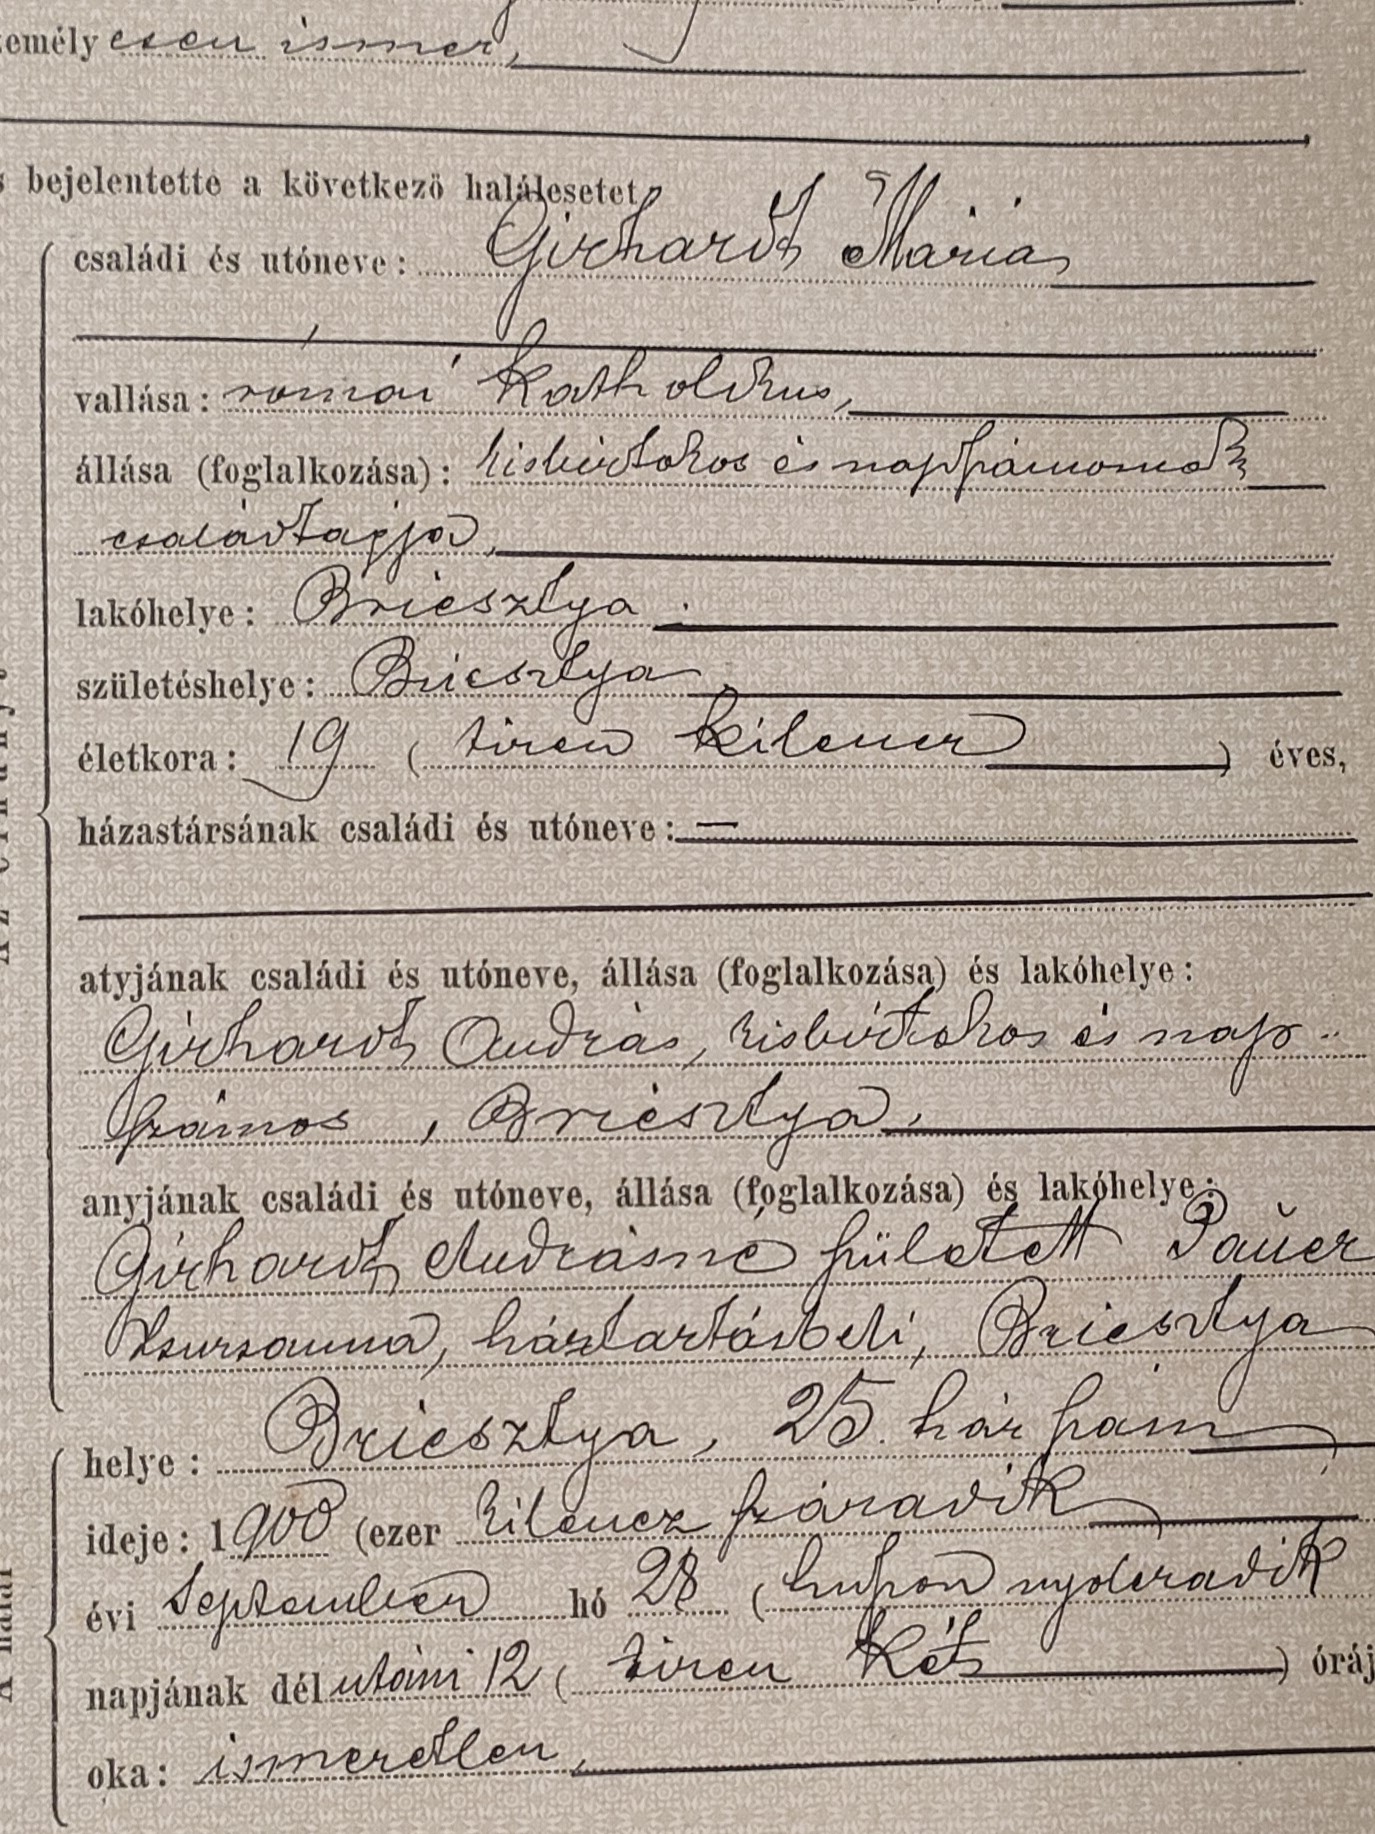 személy esen ismer,
s bejelentette a következő halálesetet
családi és utóneve: Girhardt Mária
vallása: római katholikus,
állása (foglalkozása): kisbirtokos és napszámosnak
családtagja,
lakóhelye: Briesztya
születéshelye: Briesztya
életkora: 19 ( tizen kilencz ) éves,
házastársának családi és utóneve: —
atyjának családi és utóneve, állása (foglalkozása) és lakóhelye:
Girhardt András, kisbirtokos és nap-
számos, Briesztya,
anyjának családi és utóneve, állása (foglalkozása) és lakóhelye:
Girhardt Andrásné született Pauer
Zsuzsanna, háztartásbeli, Briesztya
helye: Briesztya, 25. ház szám
ideje: 1900 (ezer kilencz századik
évi September hó 28 ( huszon nyolczadik
napjának dél utáni 12 ( tizen két ) óráj
oka: ismeretlen,